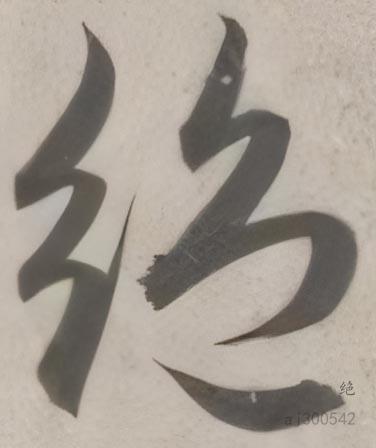 绝
绝
a1300542